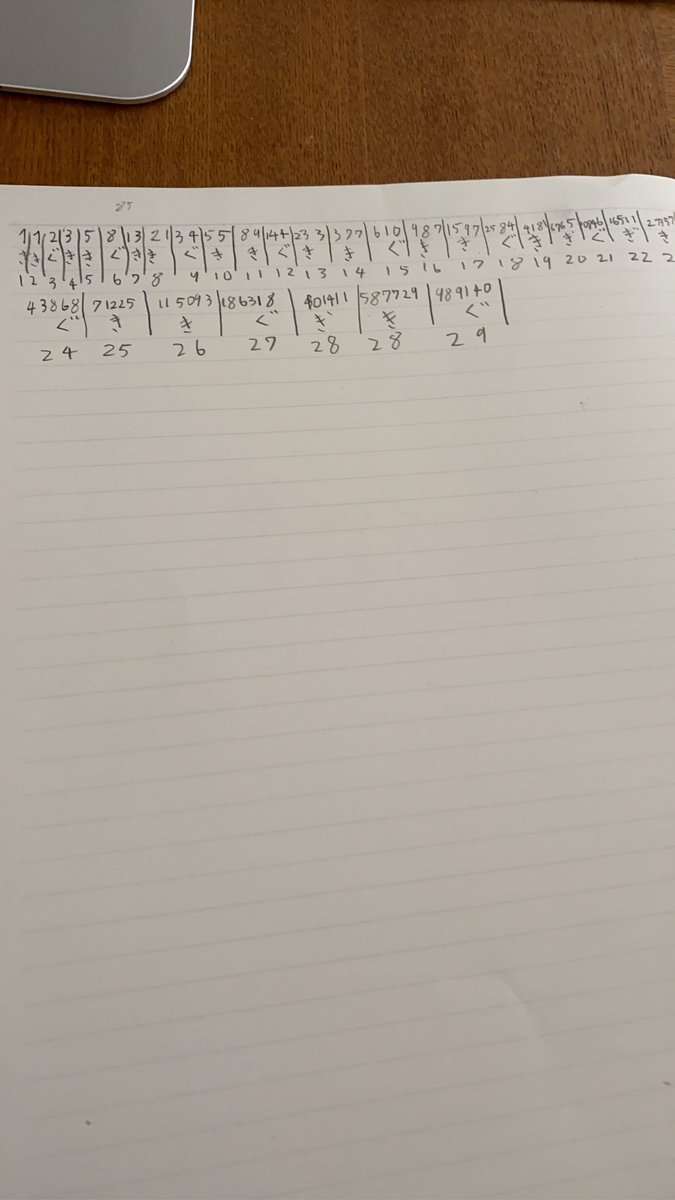 85
1|1|2|3|5|8|13|21|34|55|89|144|233|377|610|987|1597|2584|4181|6765|10946|16511|27457
き|き|ぐ|き|き|ぐ|き|き|ぐ|き|き|ぐ|き|き|ぐ|き|き|ぐ|き|き|ぐ|き|き
1 2 3 4 5 6 7 8 9 10 11 12 13 14 15 16 17 18 19 20 21 22 2
43868|71225|115093|186318|401411|587729|989140|
ぐ き き ぐ き き ぐ
24 25 26 27 28 28 29